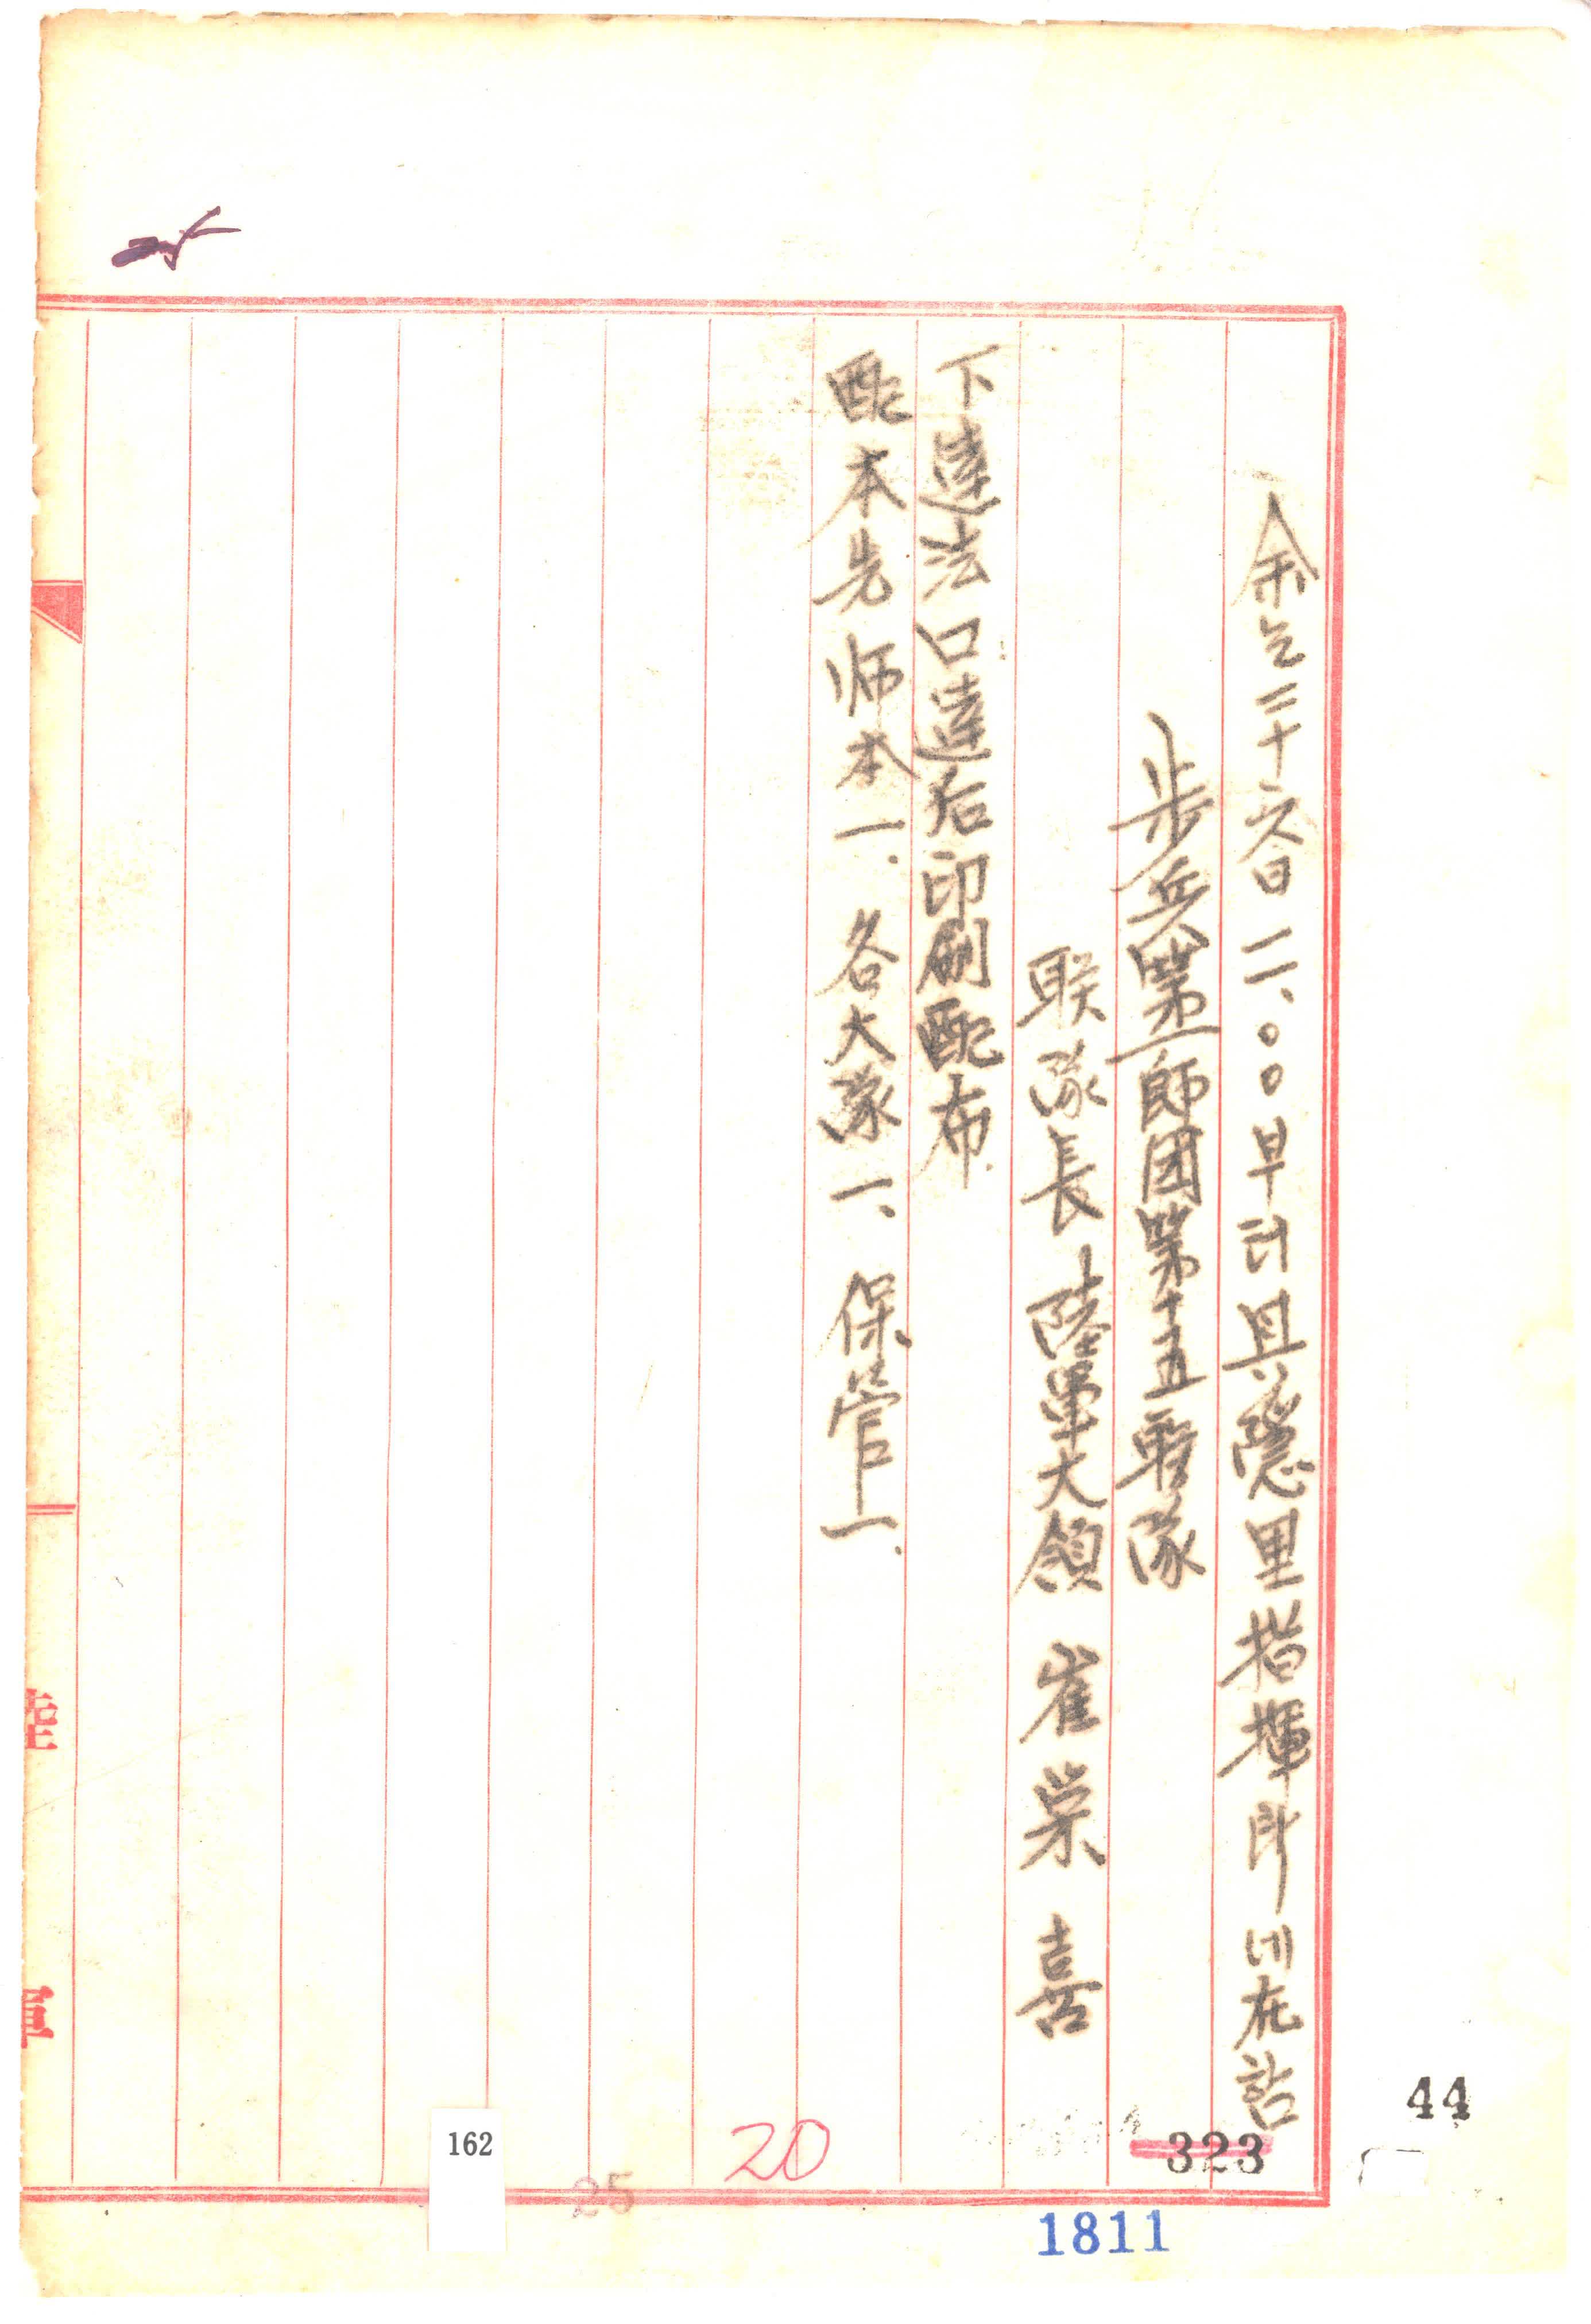 余는 二十六日 二一.〇〇부터 具隱里 指揮所에 在함
步兵第一師団第十五联隊
联隊長 陸軍大領 崔栄喜
下達法 口達后 印刷配布.
配本先 师本一. 各大隊一、保管一、
陸
軍
44
323
20
162
25
1811